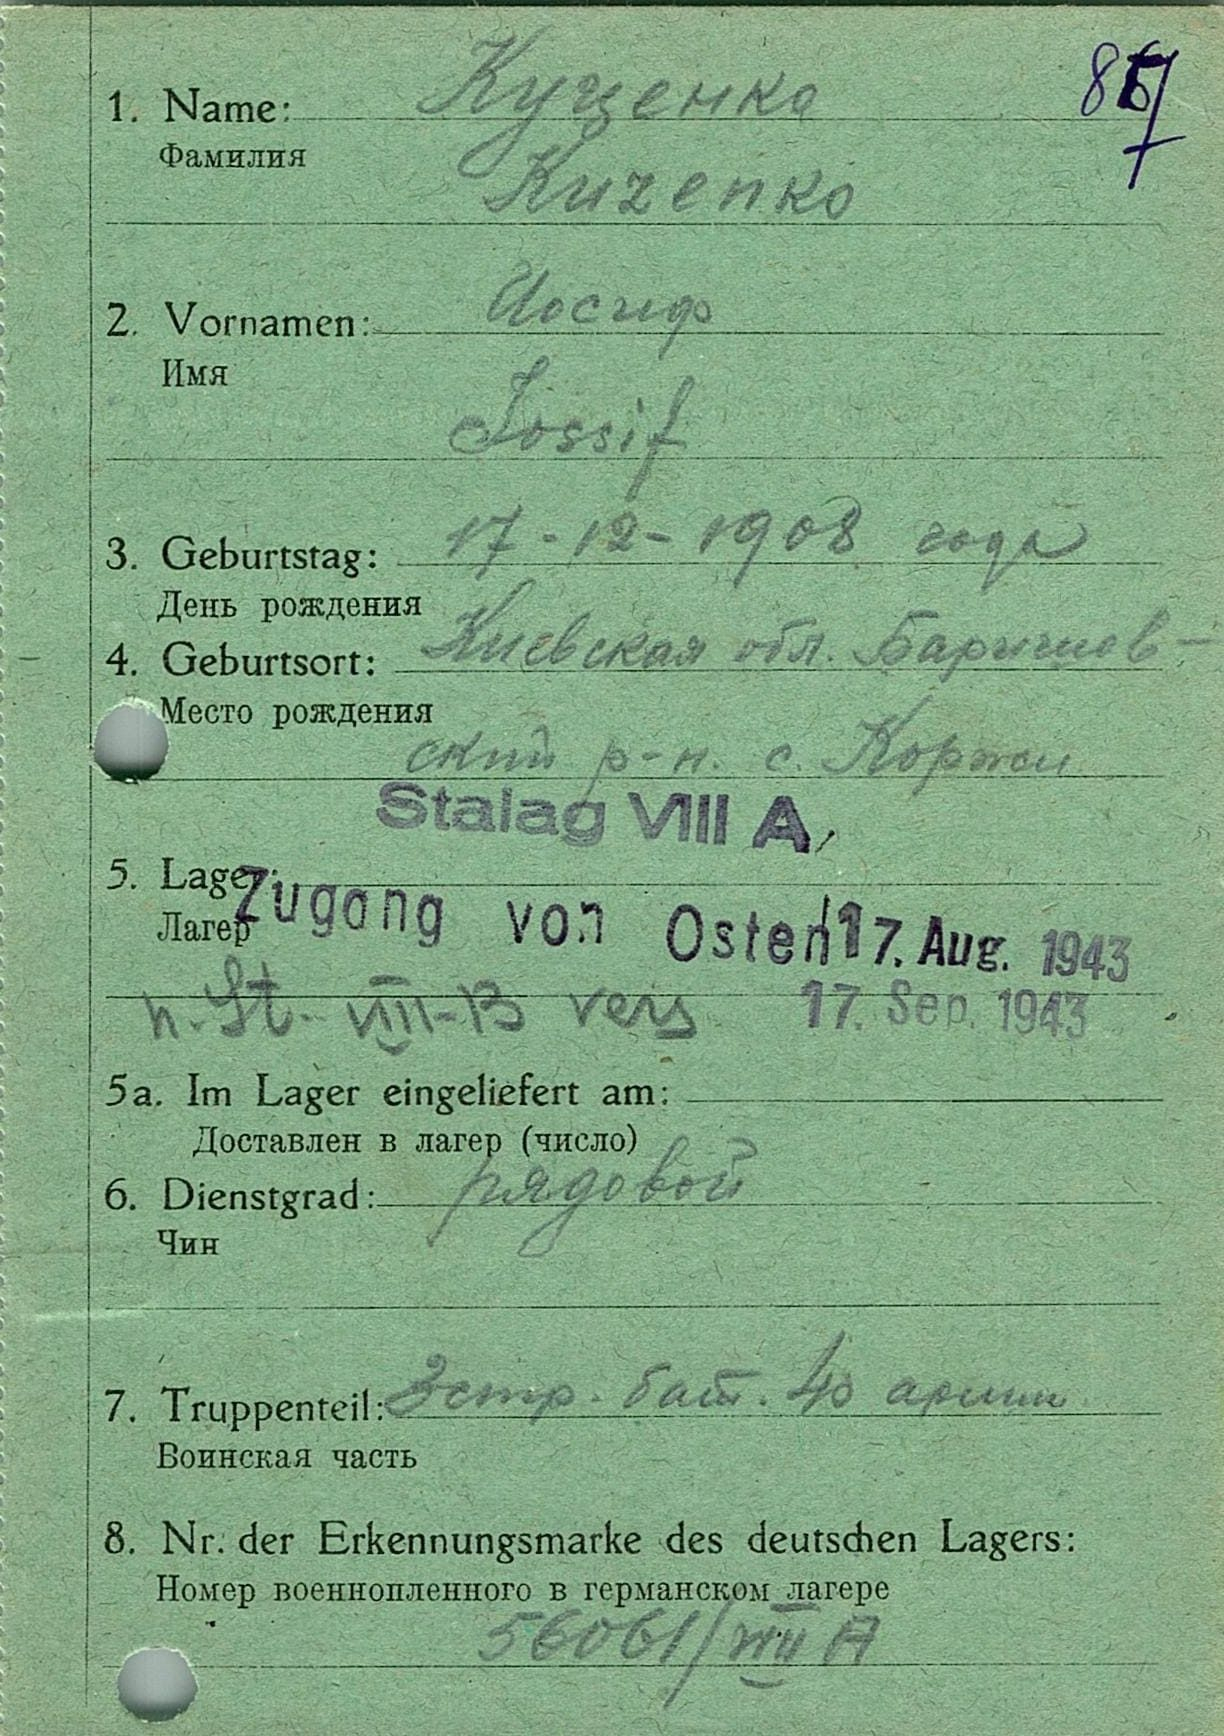 867
1. Name: Куценко
Фамилия
Kuzenko
2. Vornamen: Иосиф
Имя
Jossif
3. Geburtstag: 17-12-1908 года
День рождения
4. Geburtsort: Киевская обл. Баришев-
Место рождения
ский р-н. с. Коржи
Stalag VIII A
5. Lager:
Лагер
Zugang von Osten 17. Aug. 1943
n. St. VIII-B vers 17. Sep. 1943
5a. Im Lager eingeliefert am:
Доставлен в лагер (число)
6. Dienstgrad: рядовой
Чин
7. Truppenteil: 3 стр. бат. 40 армии
Воинская часть
8. Nr. der Erkennungsmarke des deutschen Lagers:
Номер военнопленного в германском лагере
56061/VIII A